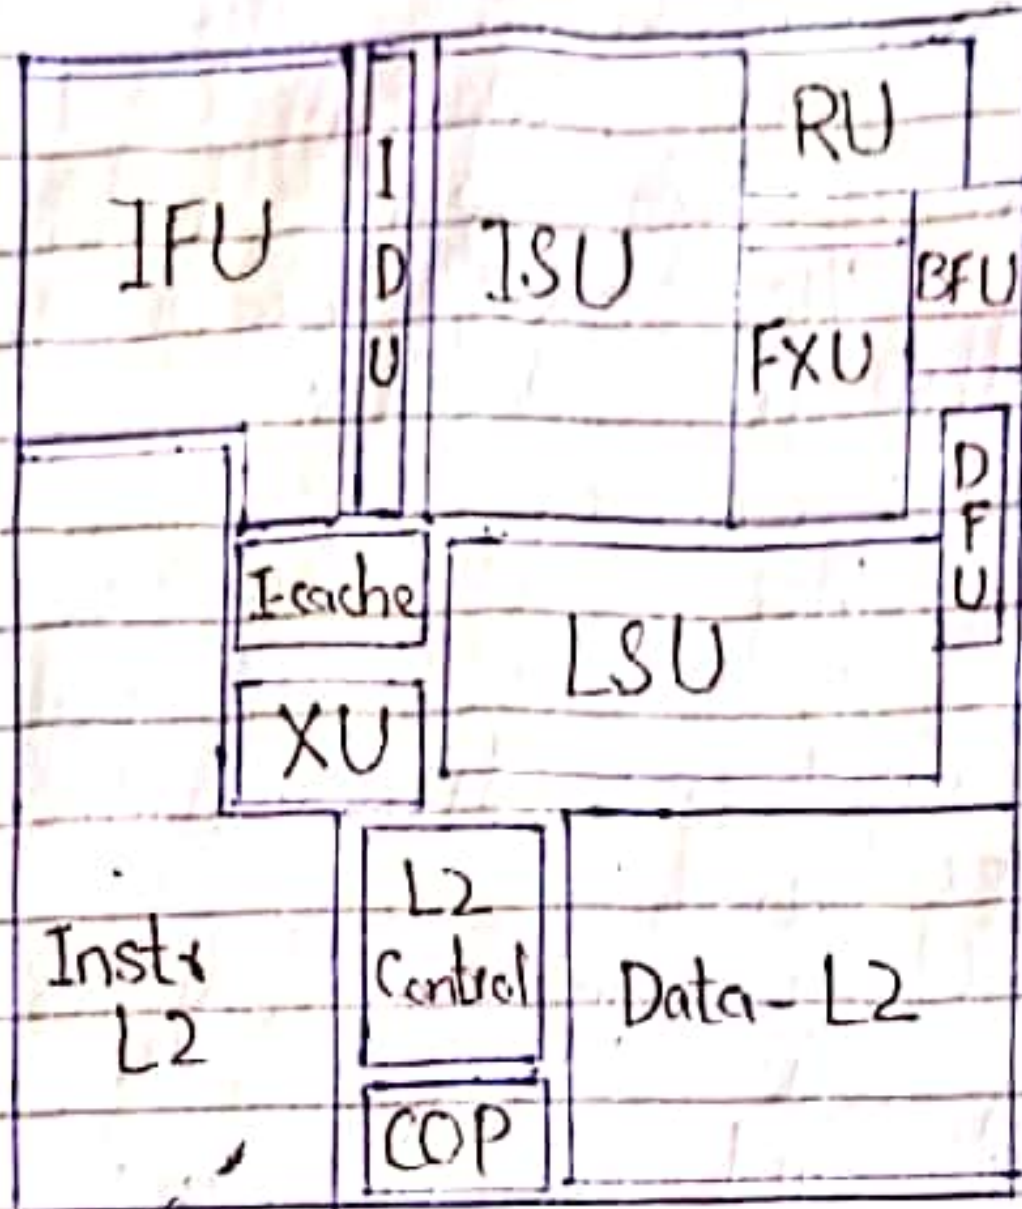 IFU
IDU
ISU
RU
FXU
BFU
DFU
I-cache
LSU
XU
Instr
L2
L2
Control
COP
Data-L2